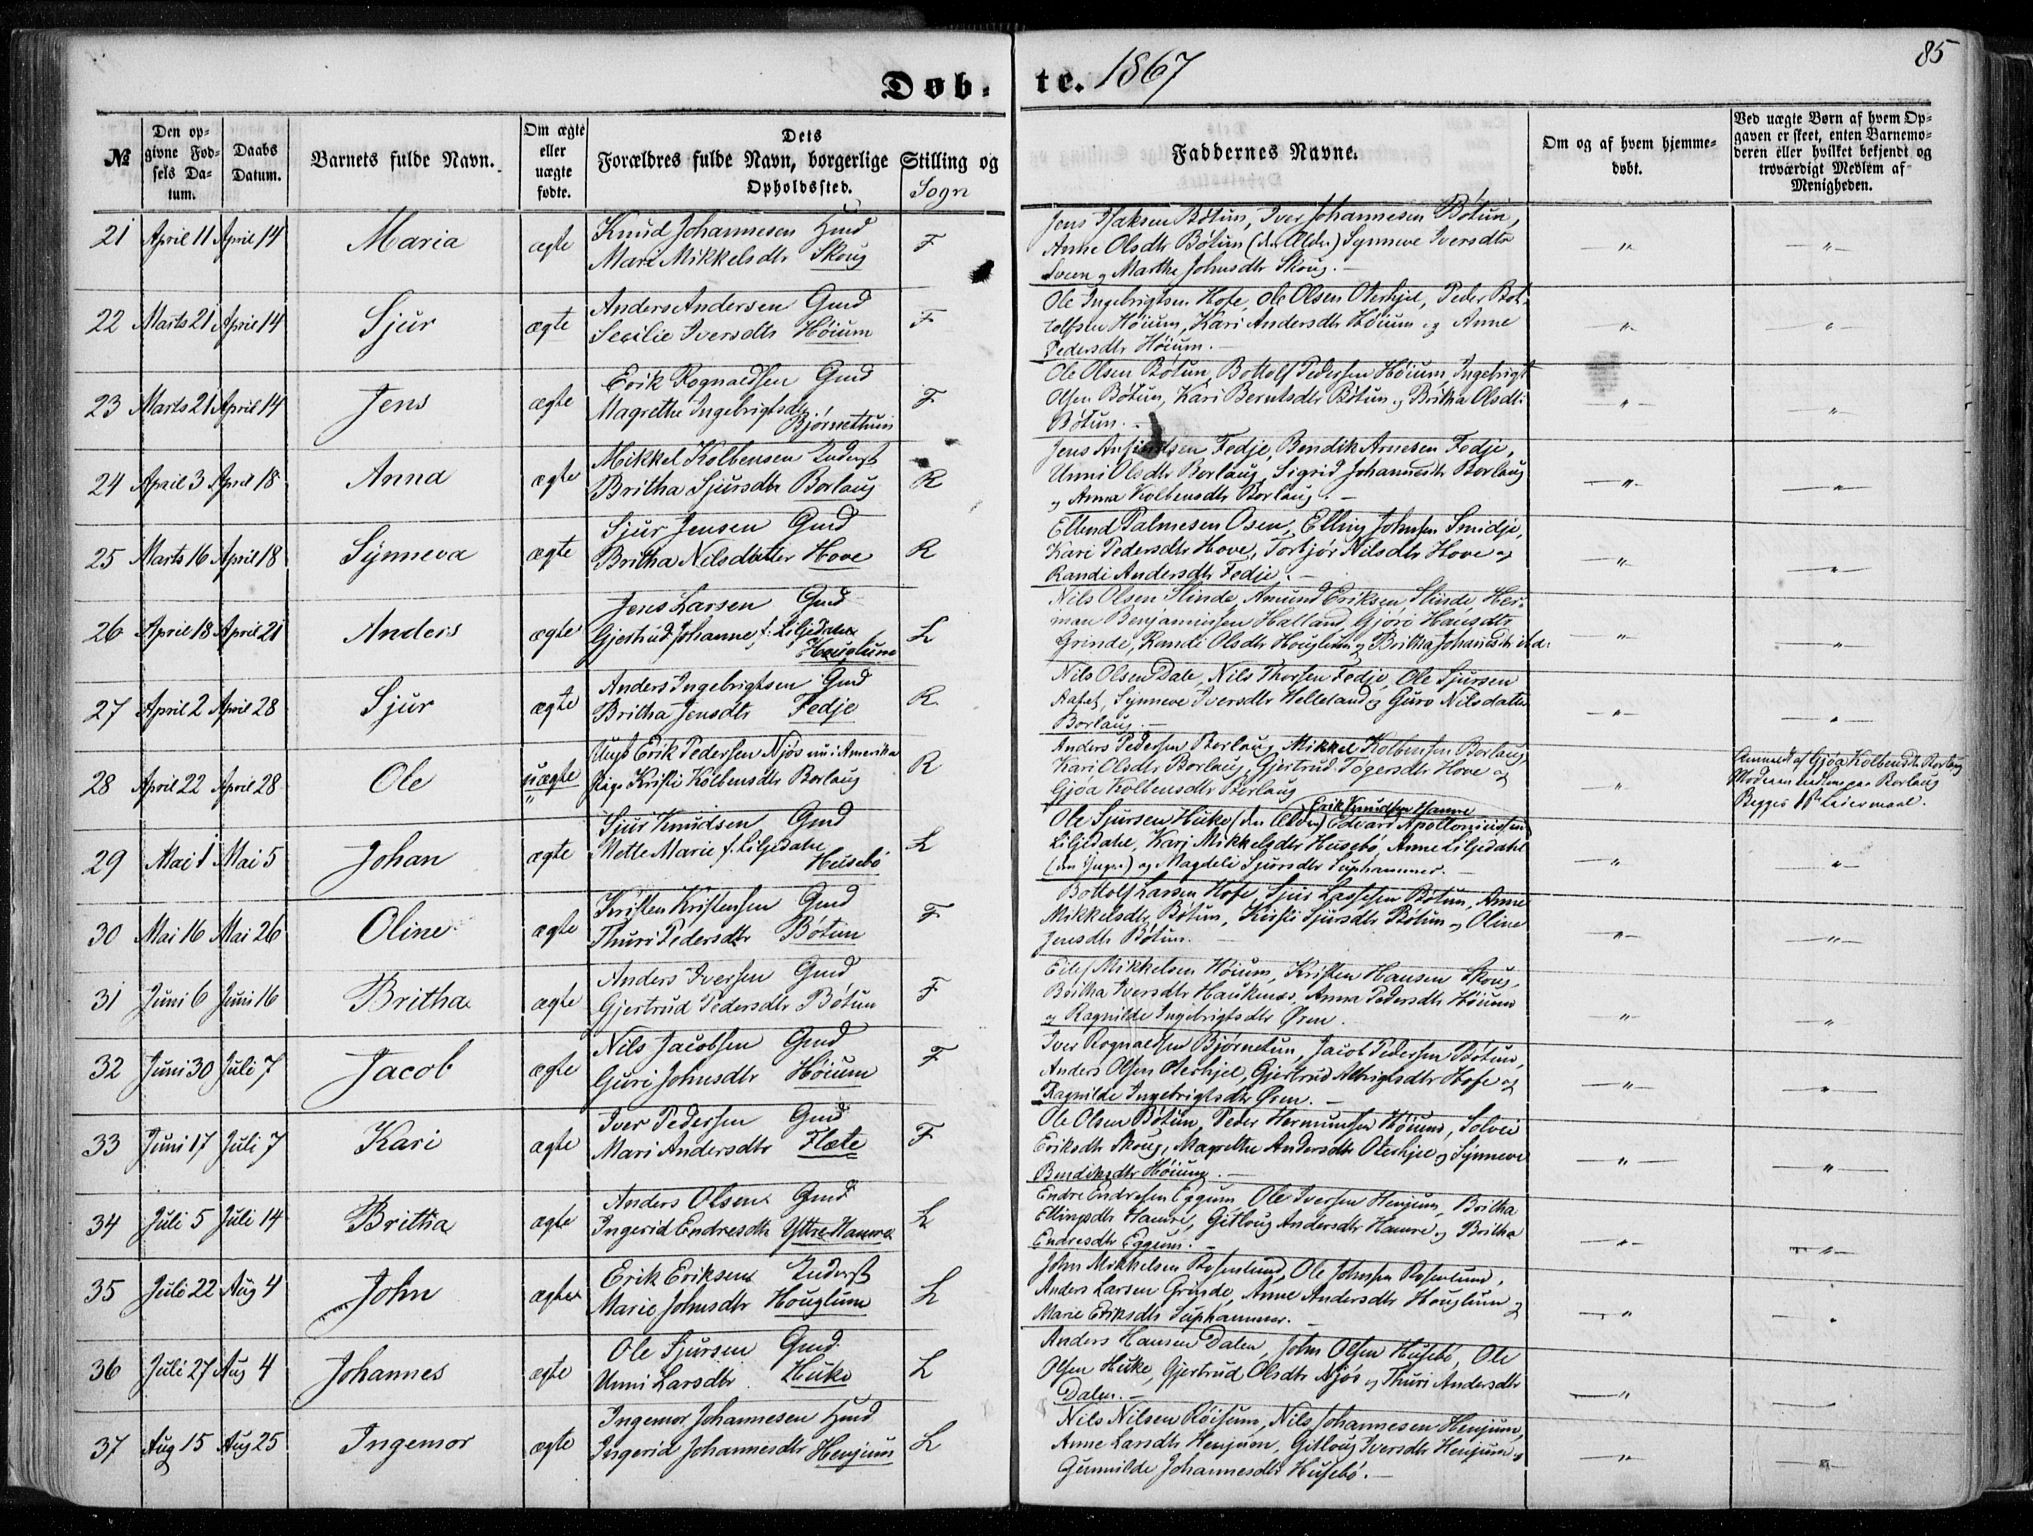 85
Døb- te. 1867
№
Den op-
givne Fød-
sels Da-
tum.
Daabs
Datum.
Barnets fulde Navn.
Om ægte
eller
uægte
fødte.
Dets
Forældres fulde Navn, borgerlige Stilling og
Opholdssted.
Sogn
Faddernes Navne.
Om og af hvem hjemme-
døbt.
Ved uægte Børn af hvem Op-
gaven er skeet, enten Barnemo-
deren eller hvilket bekjendt og
troværdigt Medlem af
Menigheden.
21 April 11 April 14 Maria ægte
Knud Johannesen Hmd
Mari Mikkelsdtr Skoug F
Jens Isaksen Bøtun, Iver Johannesen Bøtun,
Anne Olsdtr Bøtum (den Ældr.) Synneve Iversdtr
Sveen og Marthe Johnsdtr Skoug.
22 Marts 21 April 14 Sjur ægte
Anders Andersen Gmd
Secilie Iversdtr Høium F
Ole Ingebrigtsen Hofe, Ole Olsen Oterhjel, Peder Bot-
tolfsen Høium, Kari Andersdtr Høium og Anne
Pedersdtr Høium.
23 Marts 21 April 14 Jens ægte
Erik Rognaldsen Gmd
Magrethe Ingebrigtsdtr
Bjørnethun F
Ole Olsen Bøtun, Bottolf Pedersen Høium, Ingebrigt
Olsen Bøtun, Kari Berntsdtr Bøtun og Britha Olsdtr
Bøtun.
24 April 3 April 18 Anna ægte
Mikkel Kolbensen Inderst
Britha Sjursdtr Borlaug R
Jens Fedje, Bendik Arnesen Fedje,
Unni Olsdtr Borlaug, Sigrid Johannesdtr Borlaug
og Anna Kolbensdtr Borlaug.
25 Marts 16 April 18 Synneva ægte
Sjur Jensen Gmd
Britha Nilsdatter Hove R
Ellend Palmesen Osen, Elling Johnsen Smidje,
Kari Pedersdtr Hove, Torbjør Nilsdtr Hove og
Randi Andersdtr Fedje.
26 April 18 April 21 Anders ægte
Jens Larsen Gmd
Gjertrud Johanne f. Liljedahl
Houglum L
Nils Olsen Slinde, Amund Eriksen Slinde, Her-
man Benjaminsen Halland, Gjøri Hansdtr
Grinde, Randi Olsdtr Houglum og Britha Johansdtr ibd.
27 April 2 April 28 Sjur ægte
Anders Ingebrigtsen Gmd
Britha Jensdtr Fedje R
Nils Olsen Dale, Nils Thorsen Fedje, Ole Sjursen
Aafet, Synneve Iversdtr Helleland og Guro Nilsdatter
Borlaug.
28 April 22 April 28 Ole uægte
Ungk Erik Pedersen Njøs nu i Amerika
Pige Kristi Kolbensdtr Borlaug R
Anders Pedersen Borlaug, Mikkel Kolbensen Borlaug
Kari Olsdtr Borlaug, Gjertrud Tøgersdtr Hove og
Gjøa Kolbensdtr Borlaug
Anmeldt af Gjøa Kolbensdtr Borlaug
Borlaug
Begges 1ste Leiermaal.
29 Mai 1 Mai 5 Johan ægte
Sjur Knudsen Gmd
Mette Marie f. Liljedahl
Husebø L
Erik Knudsen Hamre
Ole Sjursen Huke (den Ældre) Edvard Apolloniussen
Liljedahl, Kari Mikkelsdtr Husebø, Anne Liljedahl
(den Yngr.) og Magdeli Sjursdtr Suphammer.
30 Mai 16 Mai 26 Oline ægte
Kristen Kristensen Gmd
Thuri Pedersdtr Bøtun F
Bottolf Larsen Hofe, Sjur Lassesen Bøtun, Anne
Mikkelsdtr Bøtun, Kirsti Sjursdtr Bøtun og Oline
Jensdtr Bøtun.
31 Juni 6 Juni 16 Britha ægte
Anders Iversen Gmd
Gjertrud Pedersdtr Bøtun F
Eilef Mikkelsen Høium, Kristen Hansen Skoug,
Britha Iversdtr Haukenæs, Anna Pedersdtr Høium
og Ragnilde Ingebrigtsdtr Øren.
32 Juni 30 Juli 7 Jacob ægte
Nils Jacobsen Gmd
Guri Johnsdtr Høium F
Iver Rognaldsen Bjørnetun, Jacob Pedersen Bøtun,
Anders Olsen Oterhjel, Gjertrud Albrigtsdtr Hofe og
Ragnilde Ingebrigtsdtr Øren.
33 Juni 17 Juli 7 Kari ægte
Iver Pedersen Gmd
Mari Andersdtr Flæte F
Ole Olsen Bøtun, Peder Hermunsen Høium, Solvei
Eriksdtr Skoug, Magrethe Andersdtr Oterhjel og Synneve
Bendiksdtr Høium.
34 Juli 5 Juli 14 Britha ægte
Anders Olsen Gmd
Ingerid Endresdtr Yttre Hamre L
Endre Endresen Eggum, Ole Iversen Henjum, Britha
Ellingsdtr Hamre, Gitloug Andersdtr Hamre og Britha
Endresdtr Eggum.
35 Juli 22 Aug 4 John ægte
Erik Eriksen Inderst
Marie Johnsdtr Houglum L
John Mikkelsen Rosenlund, Ole Johnsen Rosenlund,
Anders Larsen Grinde, Anne Andersdtr Houglum og
Marie Eriksdtr Suphammer.
36 Juli 27 Aug 4 Johannes ægte
Ole Sjursen Gmd
Unni Larsdtr Huke L
Anders Hansen Dalen, John Olsen Husebø, Ole
Olsen Huke, Gjertrud Olsdtr Njøs og Thuri Andersdtr
Dalen.
37 Aug 15 Aug 25 Ingemor ægte
Ingemor Johannesen Hmd
Ingerid Johannesdtr Henjum L
Nils Nilsen Røisum, Nils Johannesen Henjum,
Anne Larsdtr Henjum, Gitloug Iversdtr Henjum og
Gunnilde Johannesdtr Husebø.